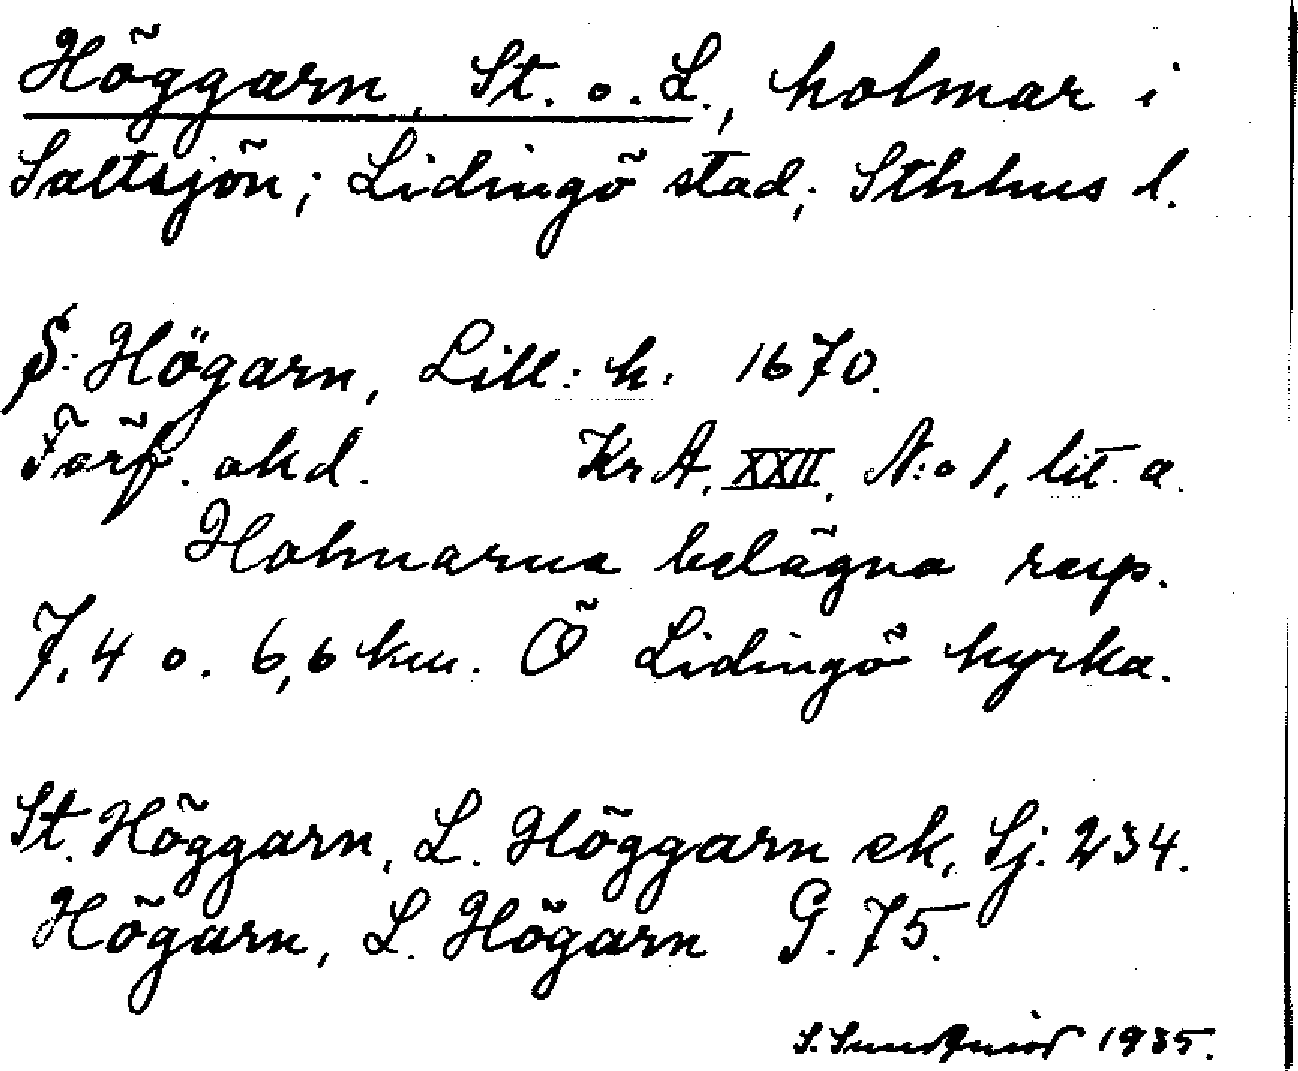 Höggarn, St. o. L., holmar i
Saltsjön; Lidingö stad; Sthlms l.
S: Högarn, Lill: h. 1670.
Förf. okd. KrA, XXII, N:o 1, lit. a.
Holmarna belägna resp.
7,4 o. 6,6 km. Ö Lidingö kyrka.
St. Höggarn, L. Höggarn ek, Sj. 234.
Högarn, L. Högarn G. 75.
S. 1935.